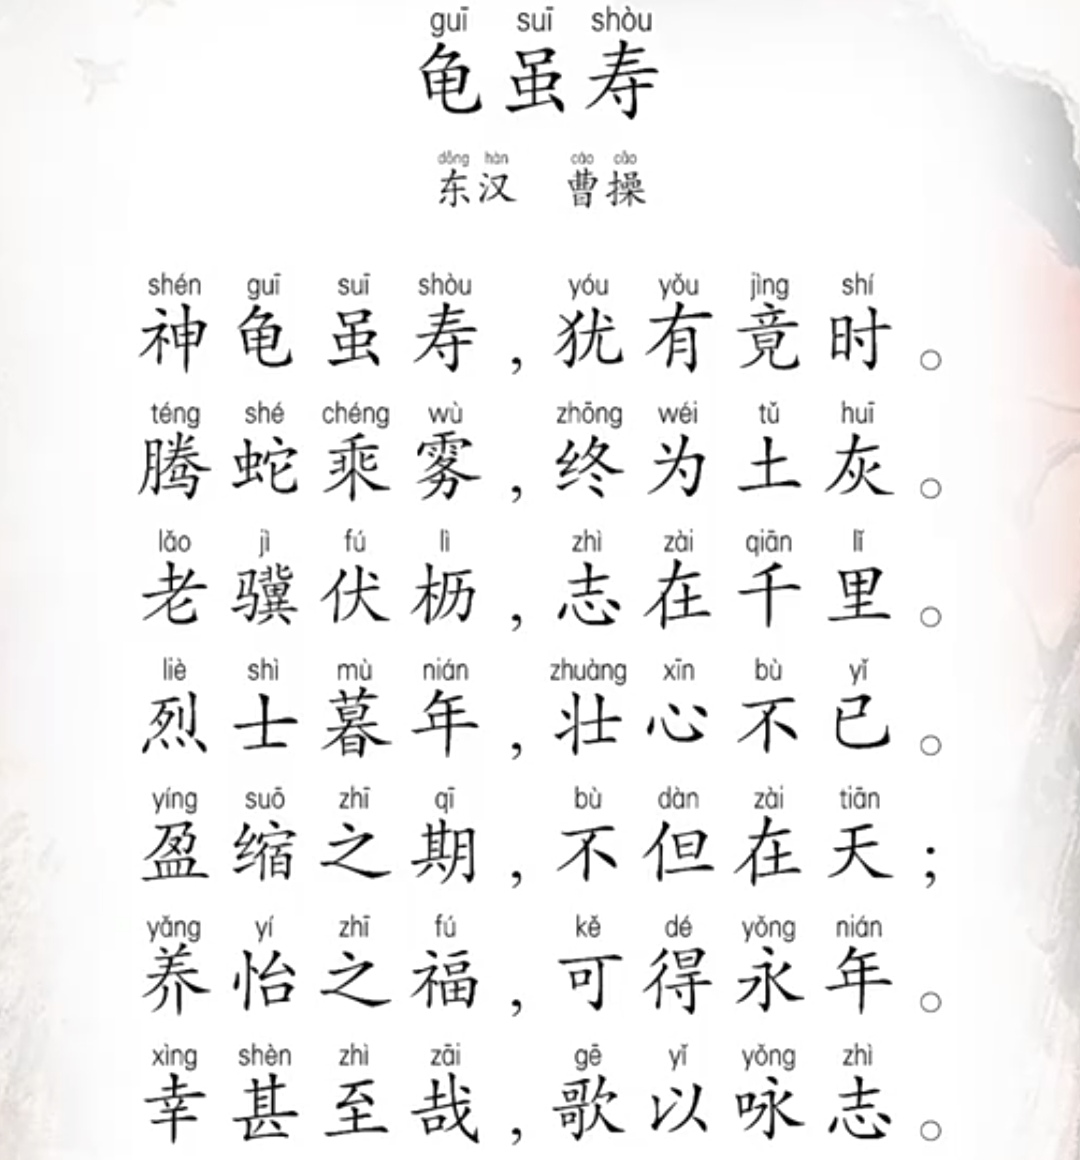 guī suī shòu
龟虽寿
dōng hàn cáo cāo
东汉 曹操
shén guī suī shòu yóu yǒu jìng shí
神龟虽寿，犹有竟时。
téng shé chéng wù zhōng wéi tǔ huī
腾蛇乘雾，终为土灰。
lǎo jì fú lì zhì zài qiān lǐ
老骥伏枥，志在千里。
liè shì mù nián zhuàng xīn bù yǐ
烈士暮年，壮心不已。
yíng suō zhī qī bù dàn zài tiān
盈缩之期，不但在天；
yǎng yí zhī fú kě dé yǒng nián
养怡之福，可得永年。
xìng shèn zhì zāi gē yǐ yǒng zhì
幸甚至哉，歌以咏志。